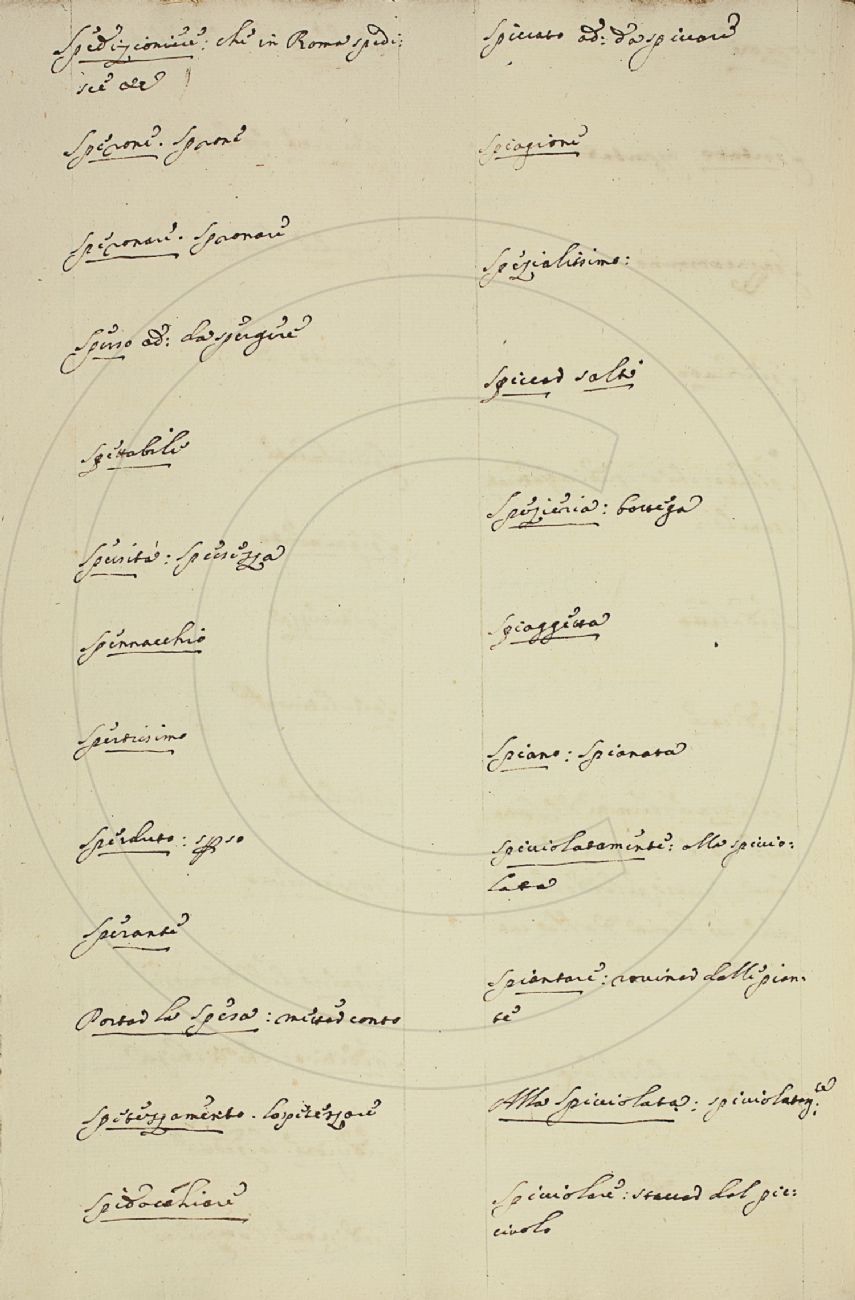 Spedizioniere: che in Roma spedi:
sce &c
Sperone. Sprone
Speronare. Spronare
Sperso ad: da spergere
Spettabile
Spessità: Spessezza
Spennacchio
Spertissimo
Sperduto: sperso
Sperante
Portar la Spesa: metter conto
Spetezzamento. lo spetezzare
Spidocchiare
Spiccato ad: da spiccare
Spiagione
Spezialissimo:
Spiccar salti
Spezieria: bottega
Spiaggetta
Spiano: Spianata
Spicciolatamente: alla spiccio:
lata
Spiantare: rovinar dalle pian:
te
Alla Spicciolata: spicciolatam:te
Spicciolare: staccar dal pic:
ciuolo